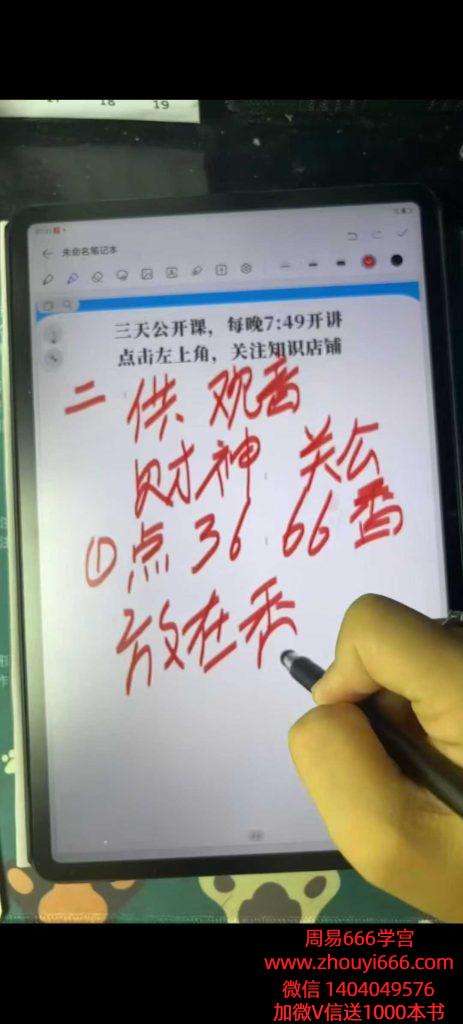 17 18 19
未命名笔记本
三天公开课，每晚7:49开讲
点击左上角，关注知识店铺
二 供 观音
财神 关公
①点 36 66 香
放在禾
周易666学宫
www.zhouyi666.com
微信 1404049576
加微V信送1000本书